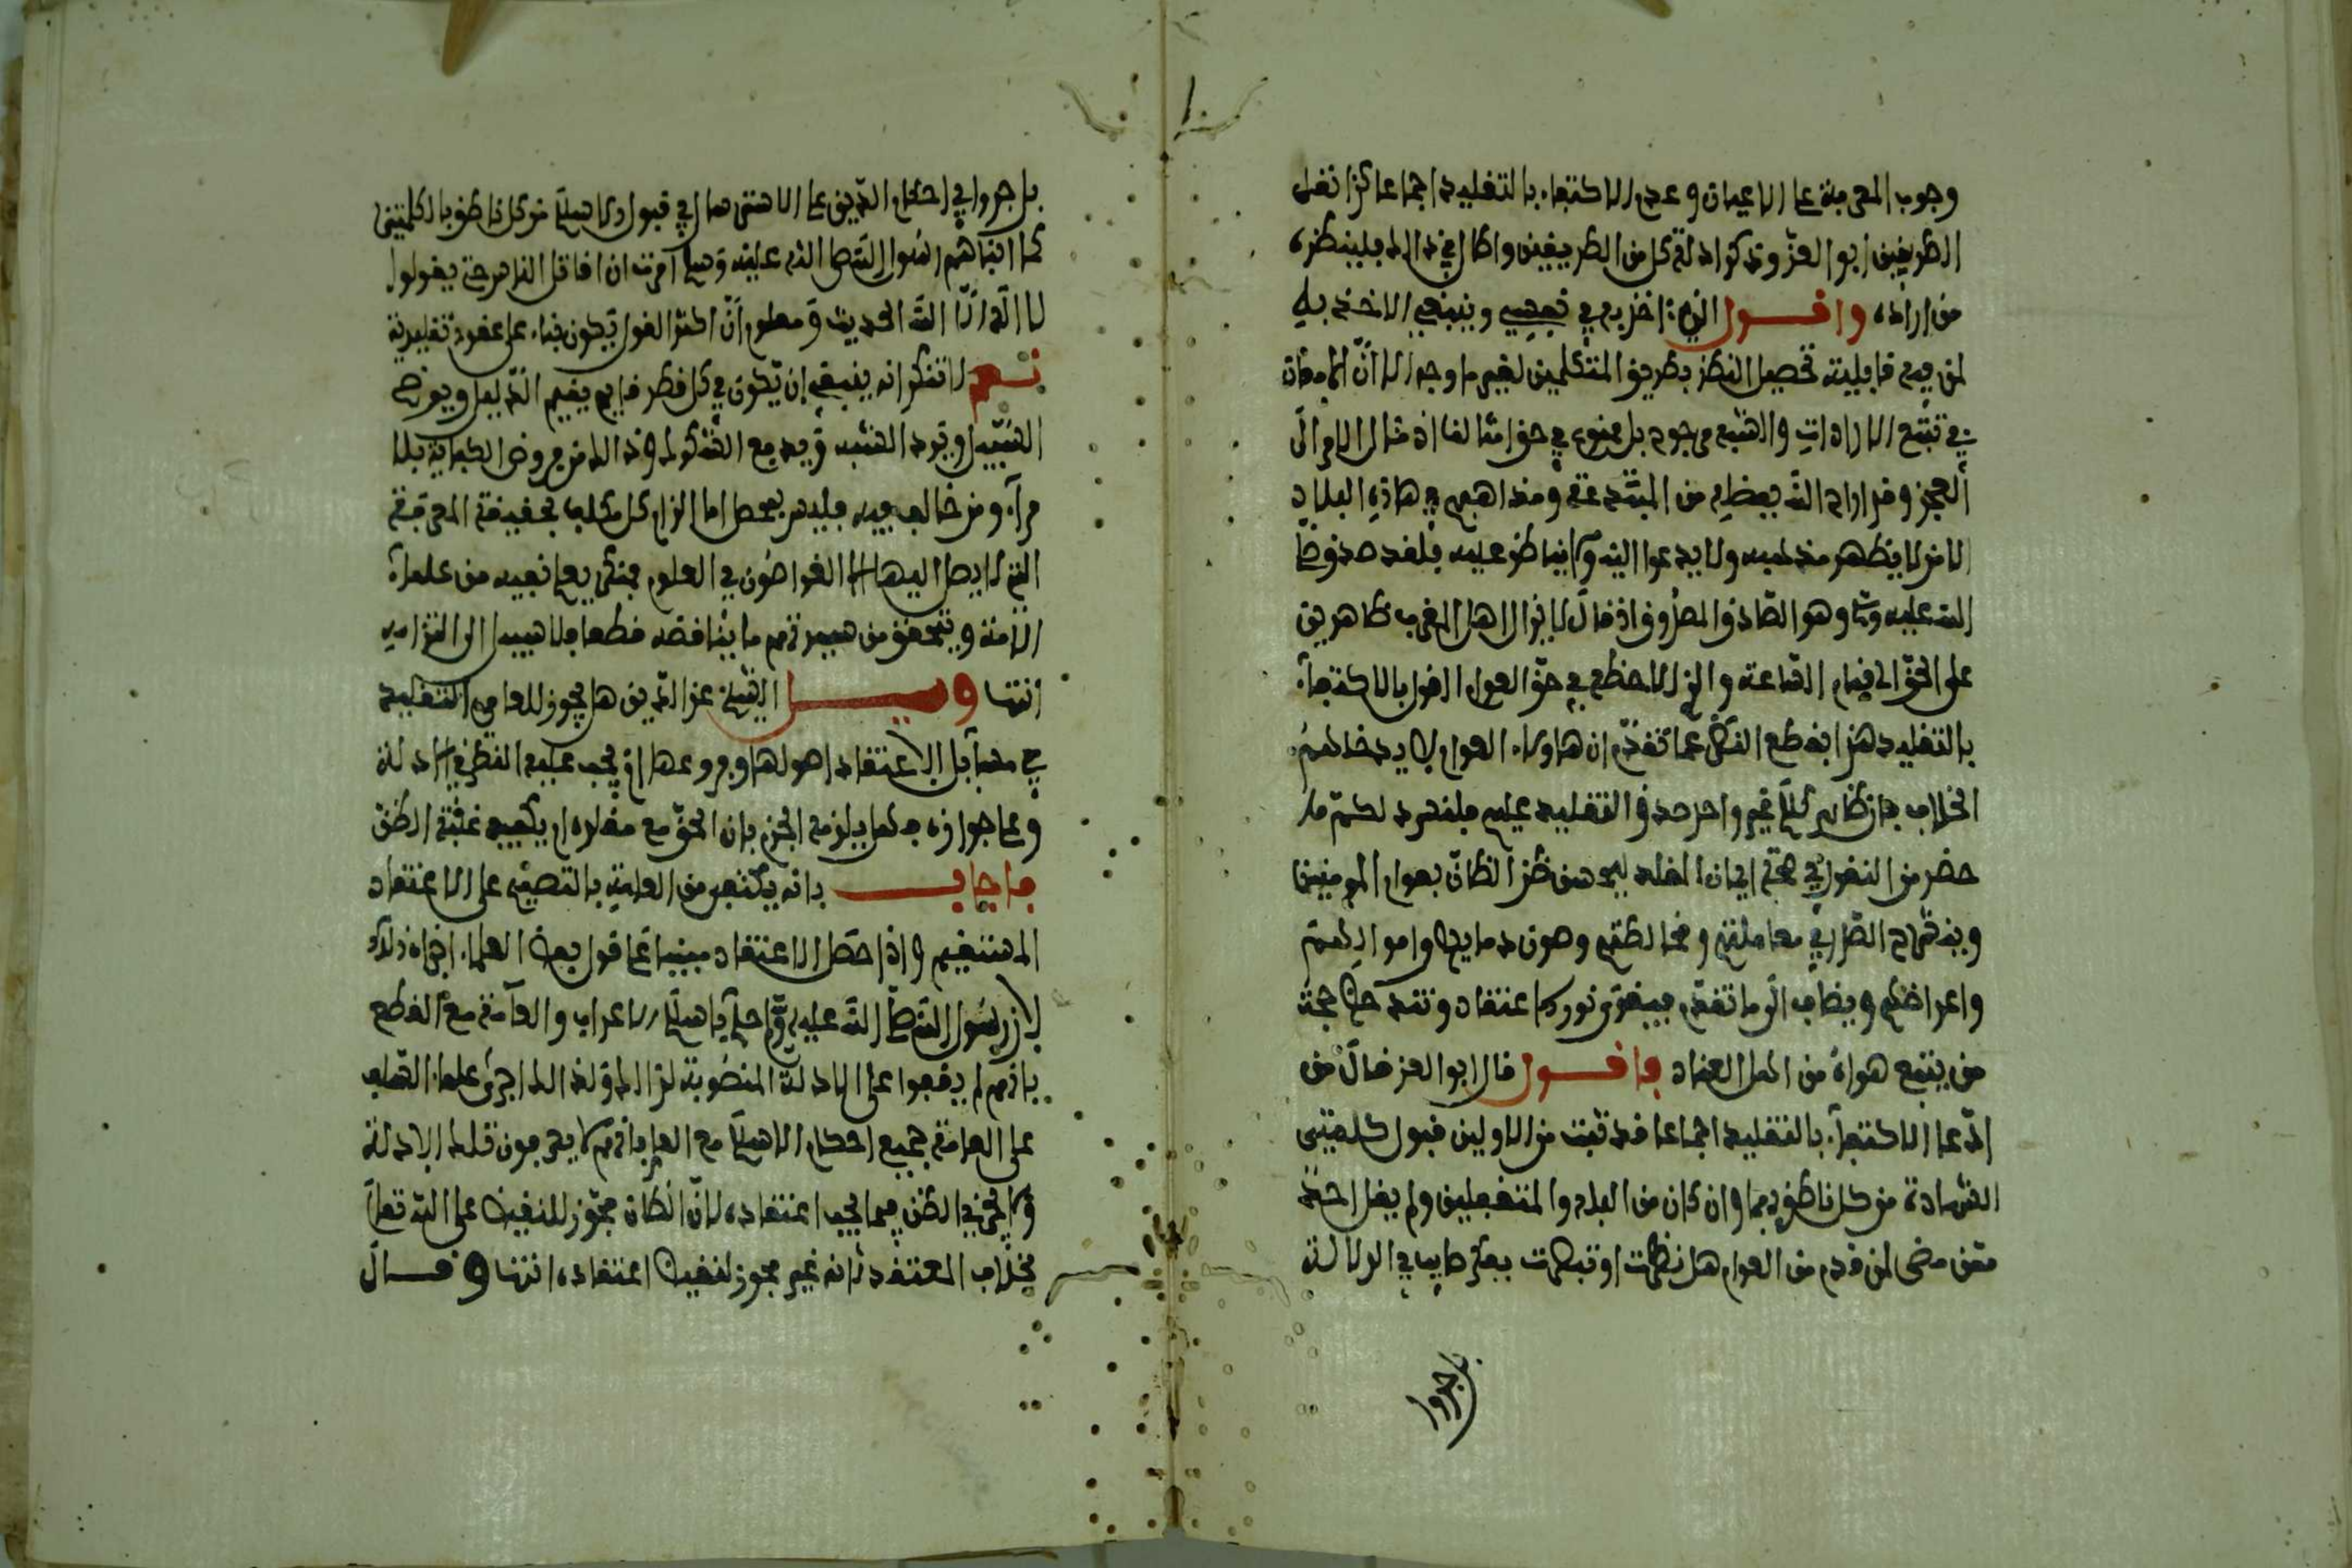 وجوب المعرفة على الاعيان وعدم الاكتفاء بالتقليد اجماعا كذا نقل
الطريقين ابو العز وذكر ادلة كل من الطريقين واطال في ذالك فلينظره
من اراده واقول الذي اخذ به في نفسي وينبغي الاخذ به
لمن فيه قابلية تحصيل النظر بطريق المتكلمين لغير ما وجه الا ان
في تتبع الارادات والتتبع موجود بل ممنوع في حق امثالنا اذ مئال الامر الى
العجز وقد اراح الله بفضله من المبتدعة ومذاهبهم في هاذه البلاد
الا من لا يظهر مذهبه ولا يدعوا اليه ولا يناظر عليه فلقد صدق صلى
الله عليه وسلم وهو الصادق المصدوق اذ قال لا يزال اهل المغرب ظاهرين
على الحق الى قيام الساعة والذي الاحظه في حق العوام القول بالاكتفاء
بالتقليد هذا بقطع النظر عما تقدم ان هاولاء العوام لا يدخلهم
الخلاف فان ظاهر كلام غير واحد صدق التقليد عليهم فلنسرد لكم ما
حضر من النقول في صحة ايمان المقلد ليحسن ظن الظان بعوام المومنين
وينشرح الصدر في معاملتهم ومخالطتهم وصون دمايهم واموالهم
واعراضهم ويضاف الى ما تقدم فيتقوى نور الاعتقاد وتندحض حجة
من يتبع هواه من اهل العناد فاقول قال ابو العز قال من
ادعا الاكتفاء بالتقليد اجماعا قد ثبت من الاولين قبول كلمتي
الشهادة من كل ناطق بهما وان كان من البله والمتغفلين ولم يقل احد
ممن مضى لمن قدم من العوام هل نظرت او تبصرت بعد طايب في الدلالة
بل جروا
بل جروا في احكام الدين على الاسترسال في قبول الاسلام من كل ناطق بالكلمتين
كما انبأهم رسول الله صلى الله عليه وسلم امرت ان اقاتل الناس حتى يقولوا
لا اله الا الله الحديث ومعلوم ان اكثر القول يكون بناء على عقود تقليدية
نعم لا ننكر انه ينبغي ان يكون في كل قطر قايم يقيم الدليل ويوضح
السبيل ويرد الشبه ويدفع الشكوك وذالك من فروض الكفاية بلا
مراء ومن خالف فيه فليس بمحصل اما الزام كل مكلف بحقيقة المعرفة
التي لا يصل اليها الا الغواصون في العلوم فمتكي يعا نعيه من علماء
الامة ويتحقق من سيرتهم ما يناقضه قطعا فلا سبيل الى التزامه
انتها وسئل الشيخ عز الدين هل يجوز للعامي التقليد
في مسايل الاعتقاد اصولها وفروعها او يجب عليه النظر في الادلة
وعلى جوازه فهل يلزمه الجزم بان الحق مع مقلده او يكفيه غلبة الظن
فاجاب بانه يكتفى من العامة بالتصميم على الاعتقاد
المستقيم واذا حصل الاعتقاد مبنيا على قول بعض العلماء اجزاه ذلك
لان رسول الله صلى الله عليه وسلم حكم باسلام الاعراب والعامة مع القطع
بانهم لم يقفوا على الادلة المنصوبة لذالك وكذالك اجرى علماء السلف
على العامة جميع احكام الاسلام مع العلم بانهم لا يعرفون تلك الادلة
ولا يجزي الظن فيما يجب اعتقاده لان الظان مجوز للنقيض على الله تعالى
بخلاف المعتقد فانه غير مجوز لنقيض اعتقاده انتها وقال